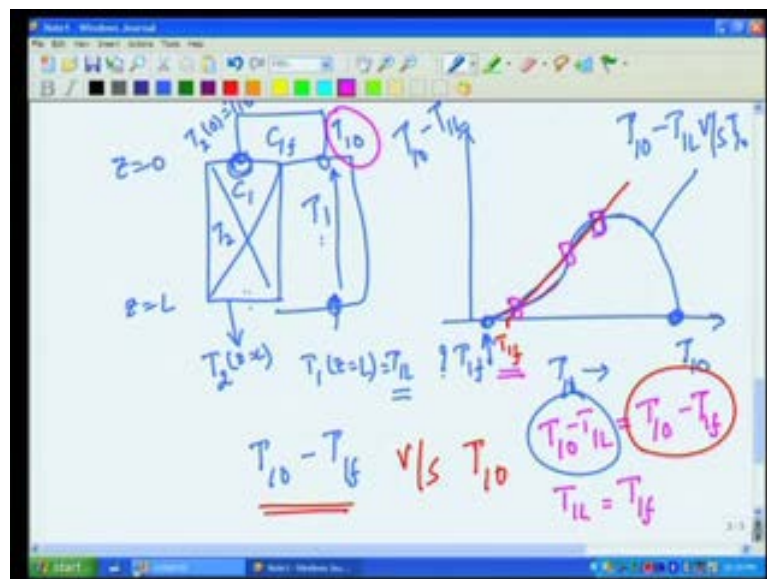 Note1 - Windows Journal
File Edit View Insert Actions Tools Help
B I
T₂(0)=T₁₀
C₁f
T₁₀
z=0
C₁
T₂
T₁
z=L
T₂(z=L)
T₁(z=L)=T₁L
T₁₀-T₁L
T₁₀-T₁L v/s T₁₀
? T₁f
T₁f
T₁L →
T₁₀
T₁₀-T₁L = T₁₀-T₁f
T₁₀-T₁f v/s T₁₀
T₁L = T₁f
start